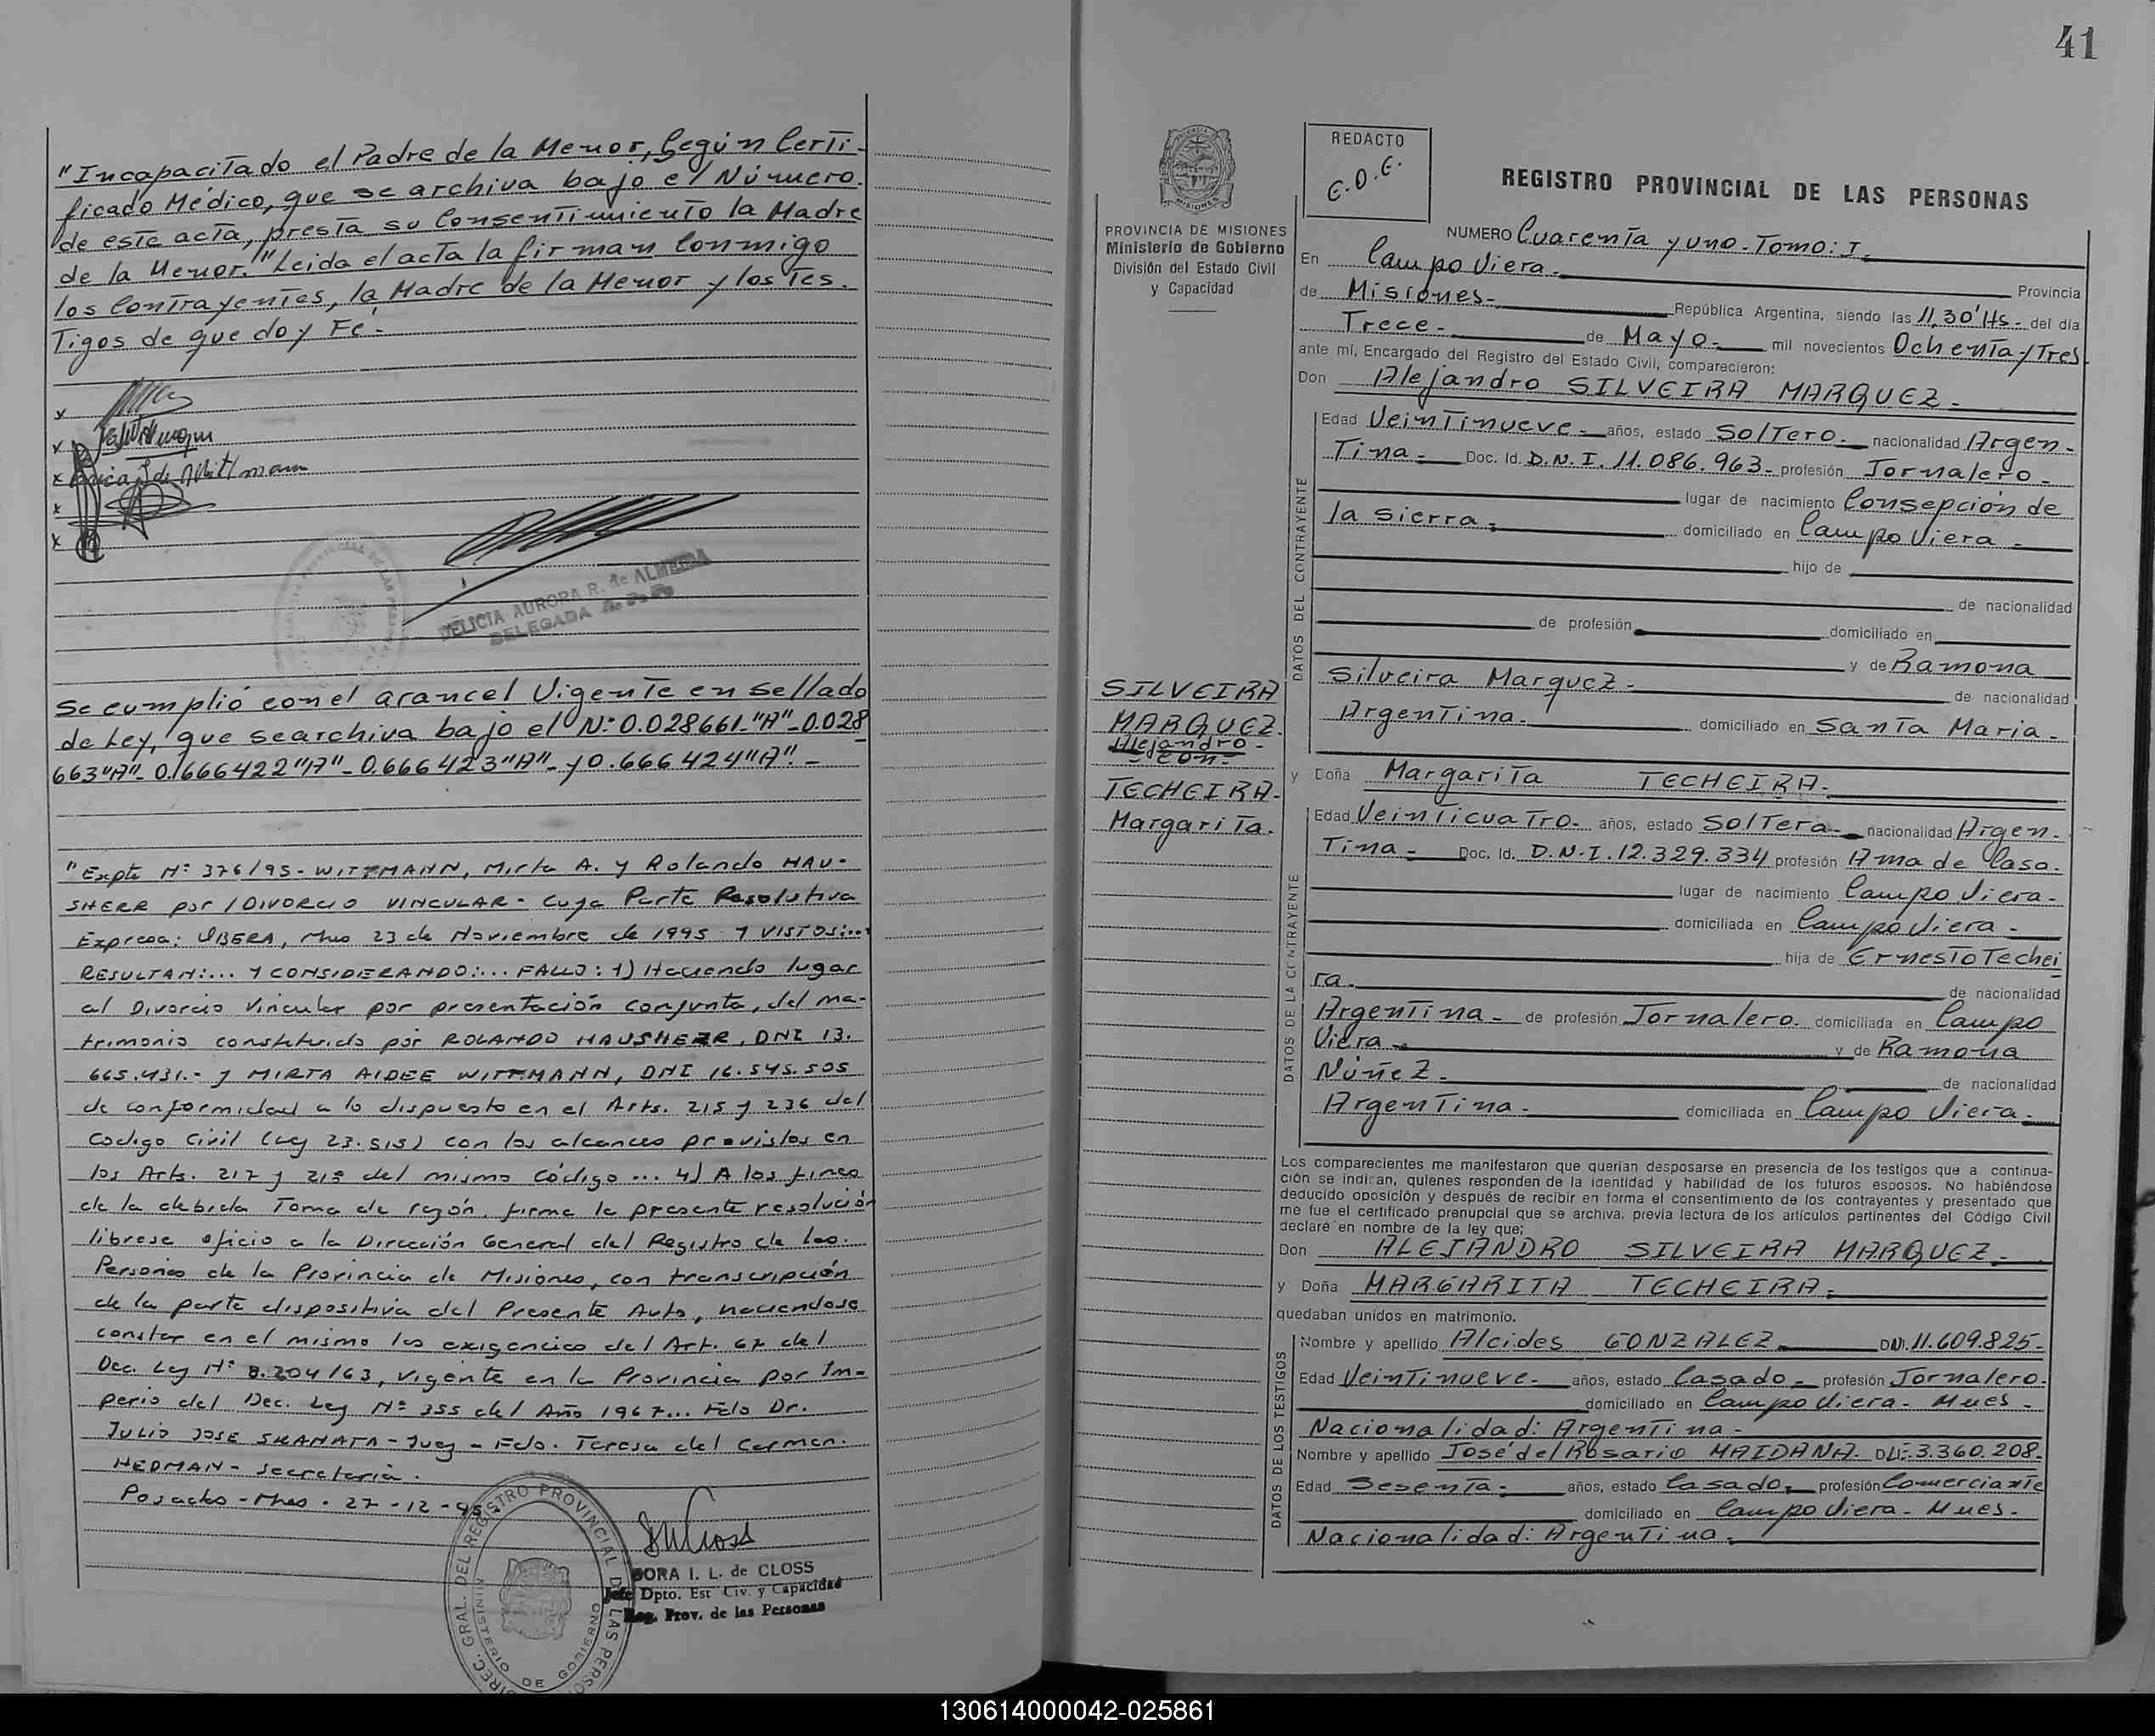 "Incapacitado el Padre de la Menor, Según Certi-
ficado Médico, que se archiva bajo el Número
de este acta, presta su Consentimiento la Madre
de la Menor." Leida el acta la firman Conmigo
los Contrayentes, la Madre de la Menor y los Tes-
Tigos de que doy Fé.-
DELICIA AURORA R. de ALMEIDA
DELEGADA
Se cumplió con el arancel Vigente en sellado
de Ley, que se archiva bajo el Nº: 0.028661-"A"-0.028
663"A"-0.666422"A"-0.666423"A"-y 0.666424"A".-
"Expte Nº 376/95-WITTMANN, Mirta A. y Rolando HAU-
SHERR por /DIVORCIO VINCULAR- Cuya Parte Resolutiva
Expresa: OBERA, Mnes 23 de Noviembre de 1995 Y VISTOS:...
RESULTAN:... Y CONSIDERANDO:... FALLO: 1) Haciendo lugar
al Divorcio Vincular por presentación conjunta, del ma-
trimonio constituido por ROLANDO HAUSHERR, DNI 13.
665.431.- y MIRTA AIDEE WITTMANN, DNI 16.545.505
de conformidad a lo dispuesto en el Arts. 215 y 236 del
Codigo Civil (Ley 23.515) con los alcances previstos en
los Arts. 217 y 218 del mismo Código ... 4) A los fines
de la debida Toma de razón, firme la presente resolución
librese oficio a la Dirección General del Registro de las
Personas de la Provincia de Misiones, con transcripción
de la parte dispositiva del Presente Auto, haciendose
constar en el mismo las exigencias del Art. 67 del
Dec. Ley Nº 8.204/63, vigente en la Provincia por Im-
perio del Dec. Ley Nº 355 del Año 1967... Fdo Dr.
JULIO JOSE SKANATA-Juez-Fdo. Teresa del Carmen
HEDMAN-Secretaria.
Posadas-Mnes. 27-12-95
DIREC. GRAL. DEL REGISTRO PROVINCIAL DE LAS PERSONAS
MINISTERIO DE GOBIERNO
DORA I. L. de CLOSS
Jefe Dpto. Est Civ. y Capacidad
Reg. Prov. de las Personas
41
PROVINCIA DE MISIONES
Ministerio de Gobierno
División del Estado Civil
y Capacidad
REDACTO
E.O.E.
REGISTRO PROVINCIAL DE LAS PERSONAS
NUMERO Cuarenta y uno.-Tomo: I.-
En Campo Viera.- Provincia
de Misiones.- República Argentina, siendo las 11,30'Hs.- del día
Trece.- de Mayo.- mil novecientos Ochenta y Tres.
ante mí, Encargado del Registro del Estado Civil, comparecieron:
Don Alejandro SILVEIRA MARQUEZ.-
DATOS DEL CONTRAYENTE
Edad Veintinueve.- años, estado Soltero.- nacionalidad Argen-
Tina.- Doc. Id. D.N.I. 11.086.963.- profesión Jornalero.-
lugar de nacimiento Consepción de
la sierra.- domiciliado en Campo Viera.-
hijo de
de nacionalidad
de profesión domiciliado en
y de Ramona
Silveira Marquez.- de nacionalidad
Argentina.- domiciliado en Santa Maria.-
SILVEIRA
MARQUEZ.
Alejandro.-
-con-
TECHEIRA.-
Margarita.
y Doña Margarita TECHEIRA.-
DATOS DE LA CONTRAYENTE
Edad Veinticuatro.- años, estado Soltera.- nacionalidad Argen-
Tina.- Doc. Id. D.N.I. 12.329.334 profesión Ama de Casa.
lugar de nacimiento Campo Viera.-
domiciliada en Campo Viera.-
hija de Ernesto Techei
ra.- de nacionalidad
Argentina.- de profesión Jornalero. domiciliada en Campo
Viera.- y de Ramona
Núñez.- de nacionalidad
Argentina.- domiciliada en Campo Viera.-
Los comparecientes me manifestaron que querían desposarse en presencia de los testigos que a continua-
ción se indican, quienes responden de la identidad y habilidad de los futuros esposos. No habiéndose
deducido oposición y después de recibir en forma el consentimiento de los contrayentes y presentado que
me fue el certificado prenupcial que se archiva, previa lectura de los artículos pertinentes del Código Civil
declaré en nombre de la ley que;
Don ALEJANDRO SILVEIRA MARQUEZ.-
y Doña MARGARITA TECHEIRA.-
quedaban unidos en matrimonio.
DATOS DE LOS TESTIGOS
Nombre y apellido Alcides GONZALEZ.- DNI. 11.609.825.-
Edad Veintinueve.- años, estado Casado.- profesión Jornalero.
domiciliado en Campo Viera.- Mnes.-
Nacionalidad: Argentina.-
Nombre y apellido José del Rosario MAIDANA. DLE. 3.360.208.-
Edad Sesenta.- años, estado Casado.- profesión Comerciante
domiciliado en Campo Viera.- Mnes.-
Nacionalidad: Argentina.-
130614000042-025861